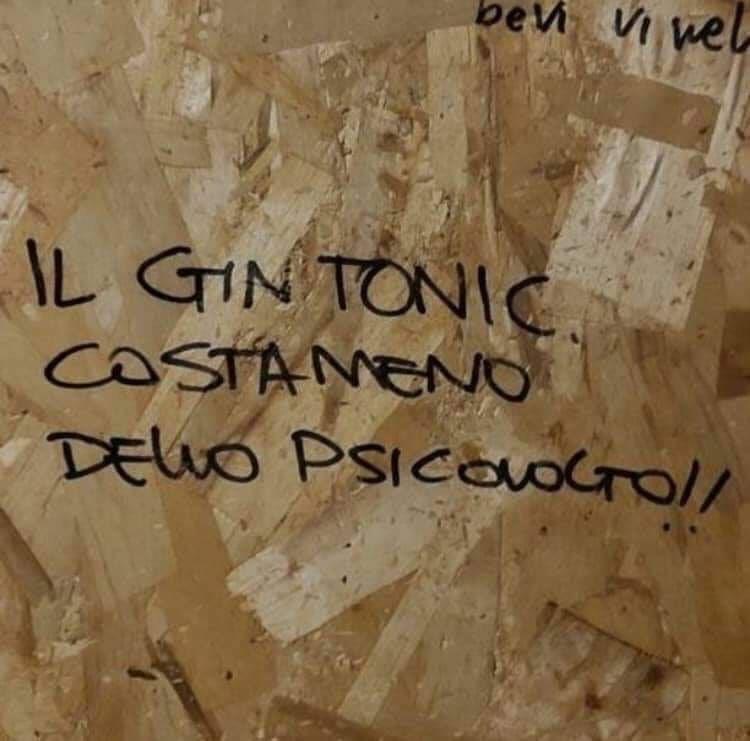 bevi vi nel
IL GIN TONIC
COSTA MENO
DELLO PSICOLOGO!!